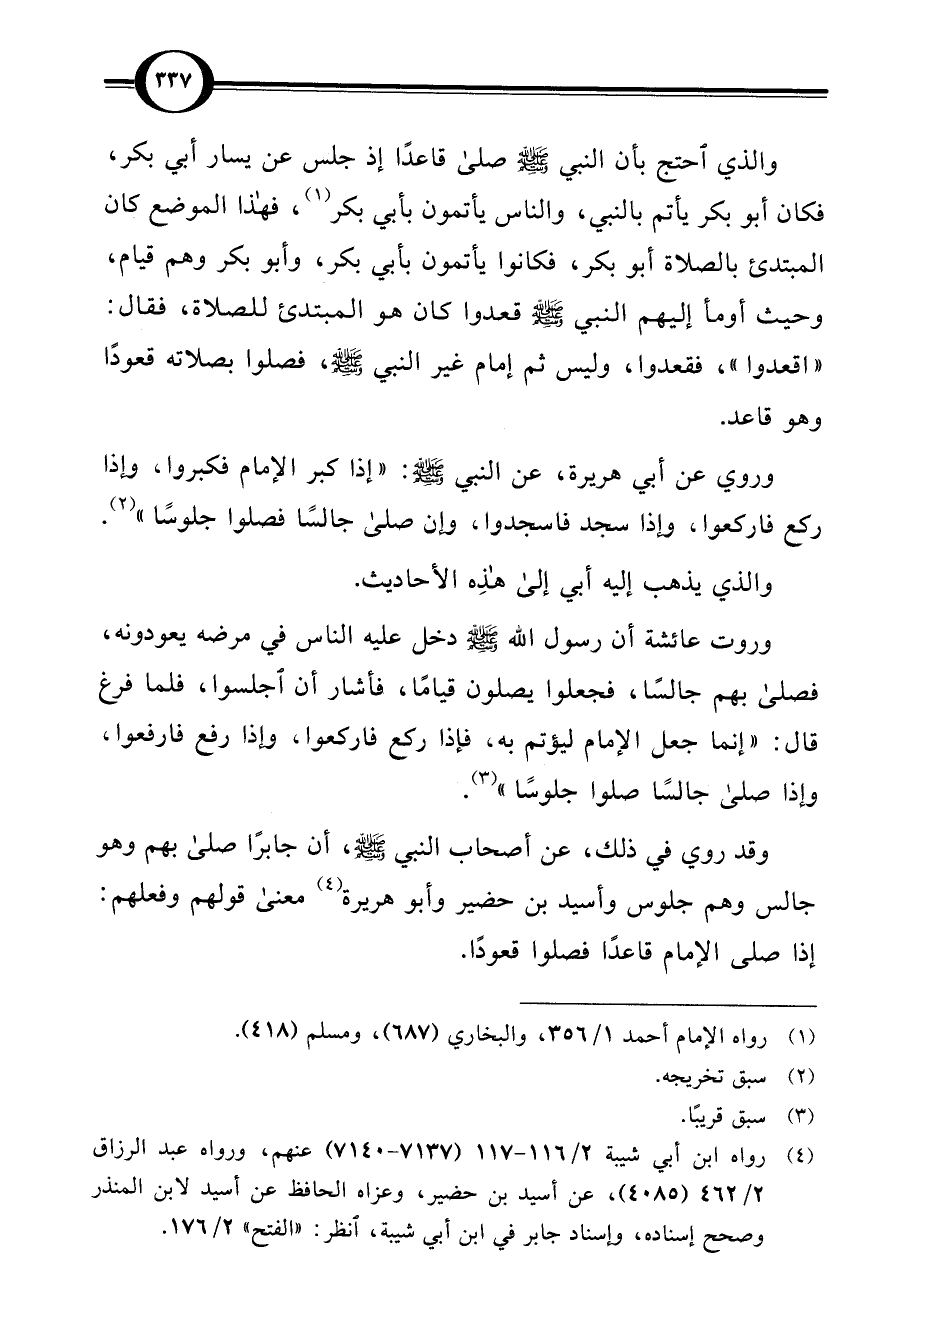 ٣٣٧
والذي ٱحتج بأن النبي ﷺ صلىٰ قاعدًا إذ جلس عن يسار أبي بكر،
فكان أبو بكر يأتم بالنبي، والناس يأتمون بأبي بكر(١)، فهٰذا الموضع كان
المبتدئ بالصلاة أبو بكر، فكانوا يأتمون بأبي بكر، وأبو بكر وهم قيام،
وحيث أومأ إليهم النبي ﷺ قعدوا كان هو المبتدئ للصلاة، فقال:
«اقعدوا»، فقعدوا، وليس ثم إمام غير النبي ﷺ، فصلوا بصلاته قعودًا
وهو قاعد.
وروي عن أبي هريرة، عن النبي ﷺ: «إذا كبر الإمام فكبروا، وإذا
ركع فاركعوا، وإذا سجد فاسجدوا، وإن صلىٰ جالسًا فصلوا جلوسًا»(٢).
والذي يذهب إليه أبي إلىٰ هٰذِه الأحاديث.
وروت عائشة أن رسول الله ﷺ دخل عليه الناس في مرضه يعودونه،
فصلىٰ بهم جالسًا، فجعلوا يصلون قيامًا، فأشار أن ٱجلسوا، فلما فرغ
قال: «إنما جعل الإمام ليؤتم به، فإذا ركع فاركعوا، وإذا رفع فارفعوا،
وإذا صلىٰ جالسًا صلوا جلوسًا»(٣).
وقد روي في ذلك، عن أصحاب النبي ﷺ، أن جابرًا صلىٰ بهم وهو
جالس وهم جلوس وأسيد بن حضير وأبو هريرة(٤) معنىٰ قولهم وفعلهم:
إذا صلى الإمام قاعدًا فصلوا قعودًا.
(١) رواه الإمام أحمد ١/ ٣٥٦، والبخاري (٦٨٧)، ومسلم (٤١٨).
(٢) سبق تخريجه.
(٣) سبق قريبًا.
(٤) رواه ابن أبي شيبة ٢/ ١١٦-١١٧ (٧١٣٧-٧١٤٠) عنهم، ورواه عبد الرزاق
٢/ ٤٦٢ (٤٠٨٥)، عن أسيد بن حضير، وعزاه الحافظ عن أسيد لابن المنذر
وصحح إسناده، وإسناد جابر في ابن أبي شيبة، ٱنظر: «الفتح» ٢/ ١٧٦.